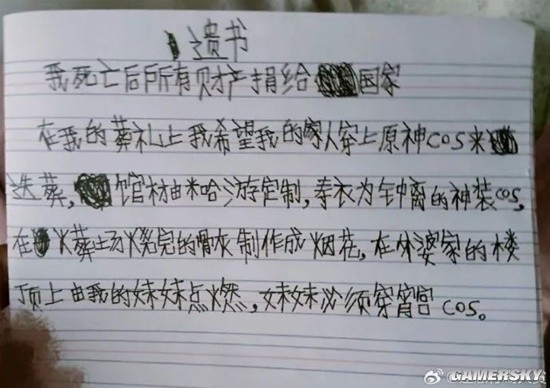 遗书
我死亡后所有财产捐给国家
在我的葬礼上我希望我的家人穿上原神cos来
送葬，棺材由米哈游定制，寿衣为钟离的神装cos，
在火葬场火烧完的骨灰制作成烟花，在外婆家的楼
顶上由我的妹妹点燃，妹妹必须穿宵宫cos。
GAMERSKY